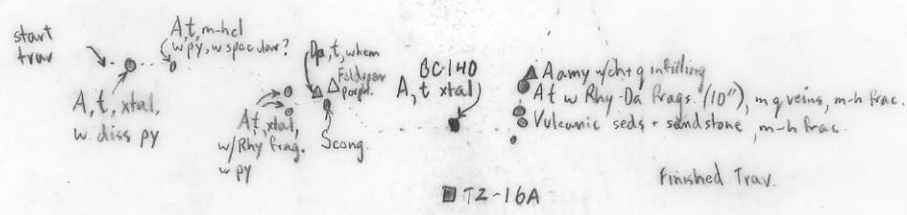 start
trav
A, t, xtal,
w diss py
A, t, m-hcl
w py, w specular?
Dp, t, w hem
Feldspar
porph.
At, xtal,
w/Rhy frag.
w py
Scong.
BC-140
A, t xtal
Aamy w/ch+q infilling
At w Rhy-Da frags. (10"), m q veins, m-h frac.
Volcanic seds + sandstone, m-h frac.
TZ-16A
Finished Trav.